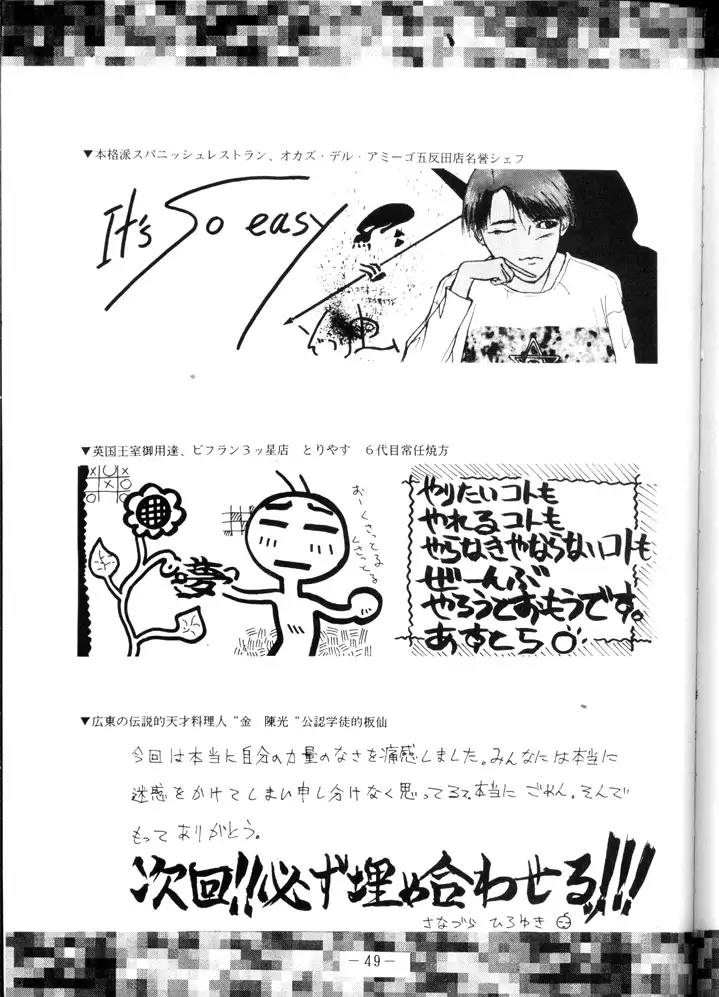 ▼本格派スパニッシュレストラン、オカズ・デル・アミーゴ五反田店名誉シェフ
It's So easy
▼英国王室御用達、ビフラン3ッ星店　とりやす　6代目常任焼方
夢
おーくさってる
くさってる
やりたいコトも
やれるコトも
やらなきゃならないコトも
ぜーんぶ
やろうとおもうです。
あすとら
▼広東の伝説的天才料理人"金　陳光"公認学徒的板仙
今回は本当に自分の力量のなさを痛感しました。みんなには本当に
迷惑をかけてしまい申し分けなく思ってるヨ、本当に ごめん。そんで
もって ありがとう。
次回!!必ず埋め合わせるッ!!!
さなづら ひろゆき
— 49 —